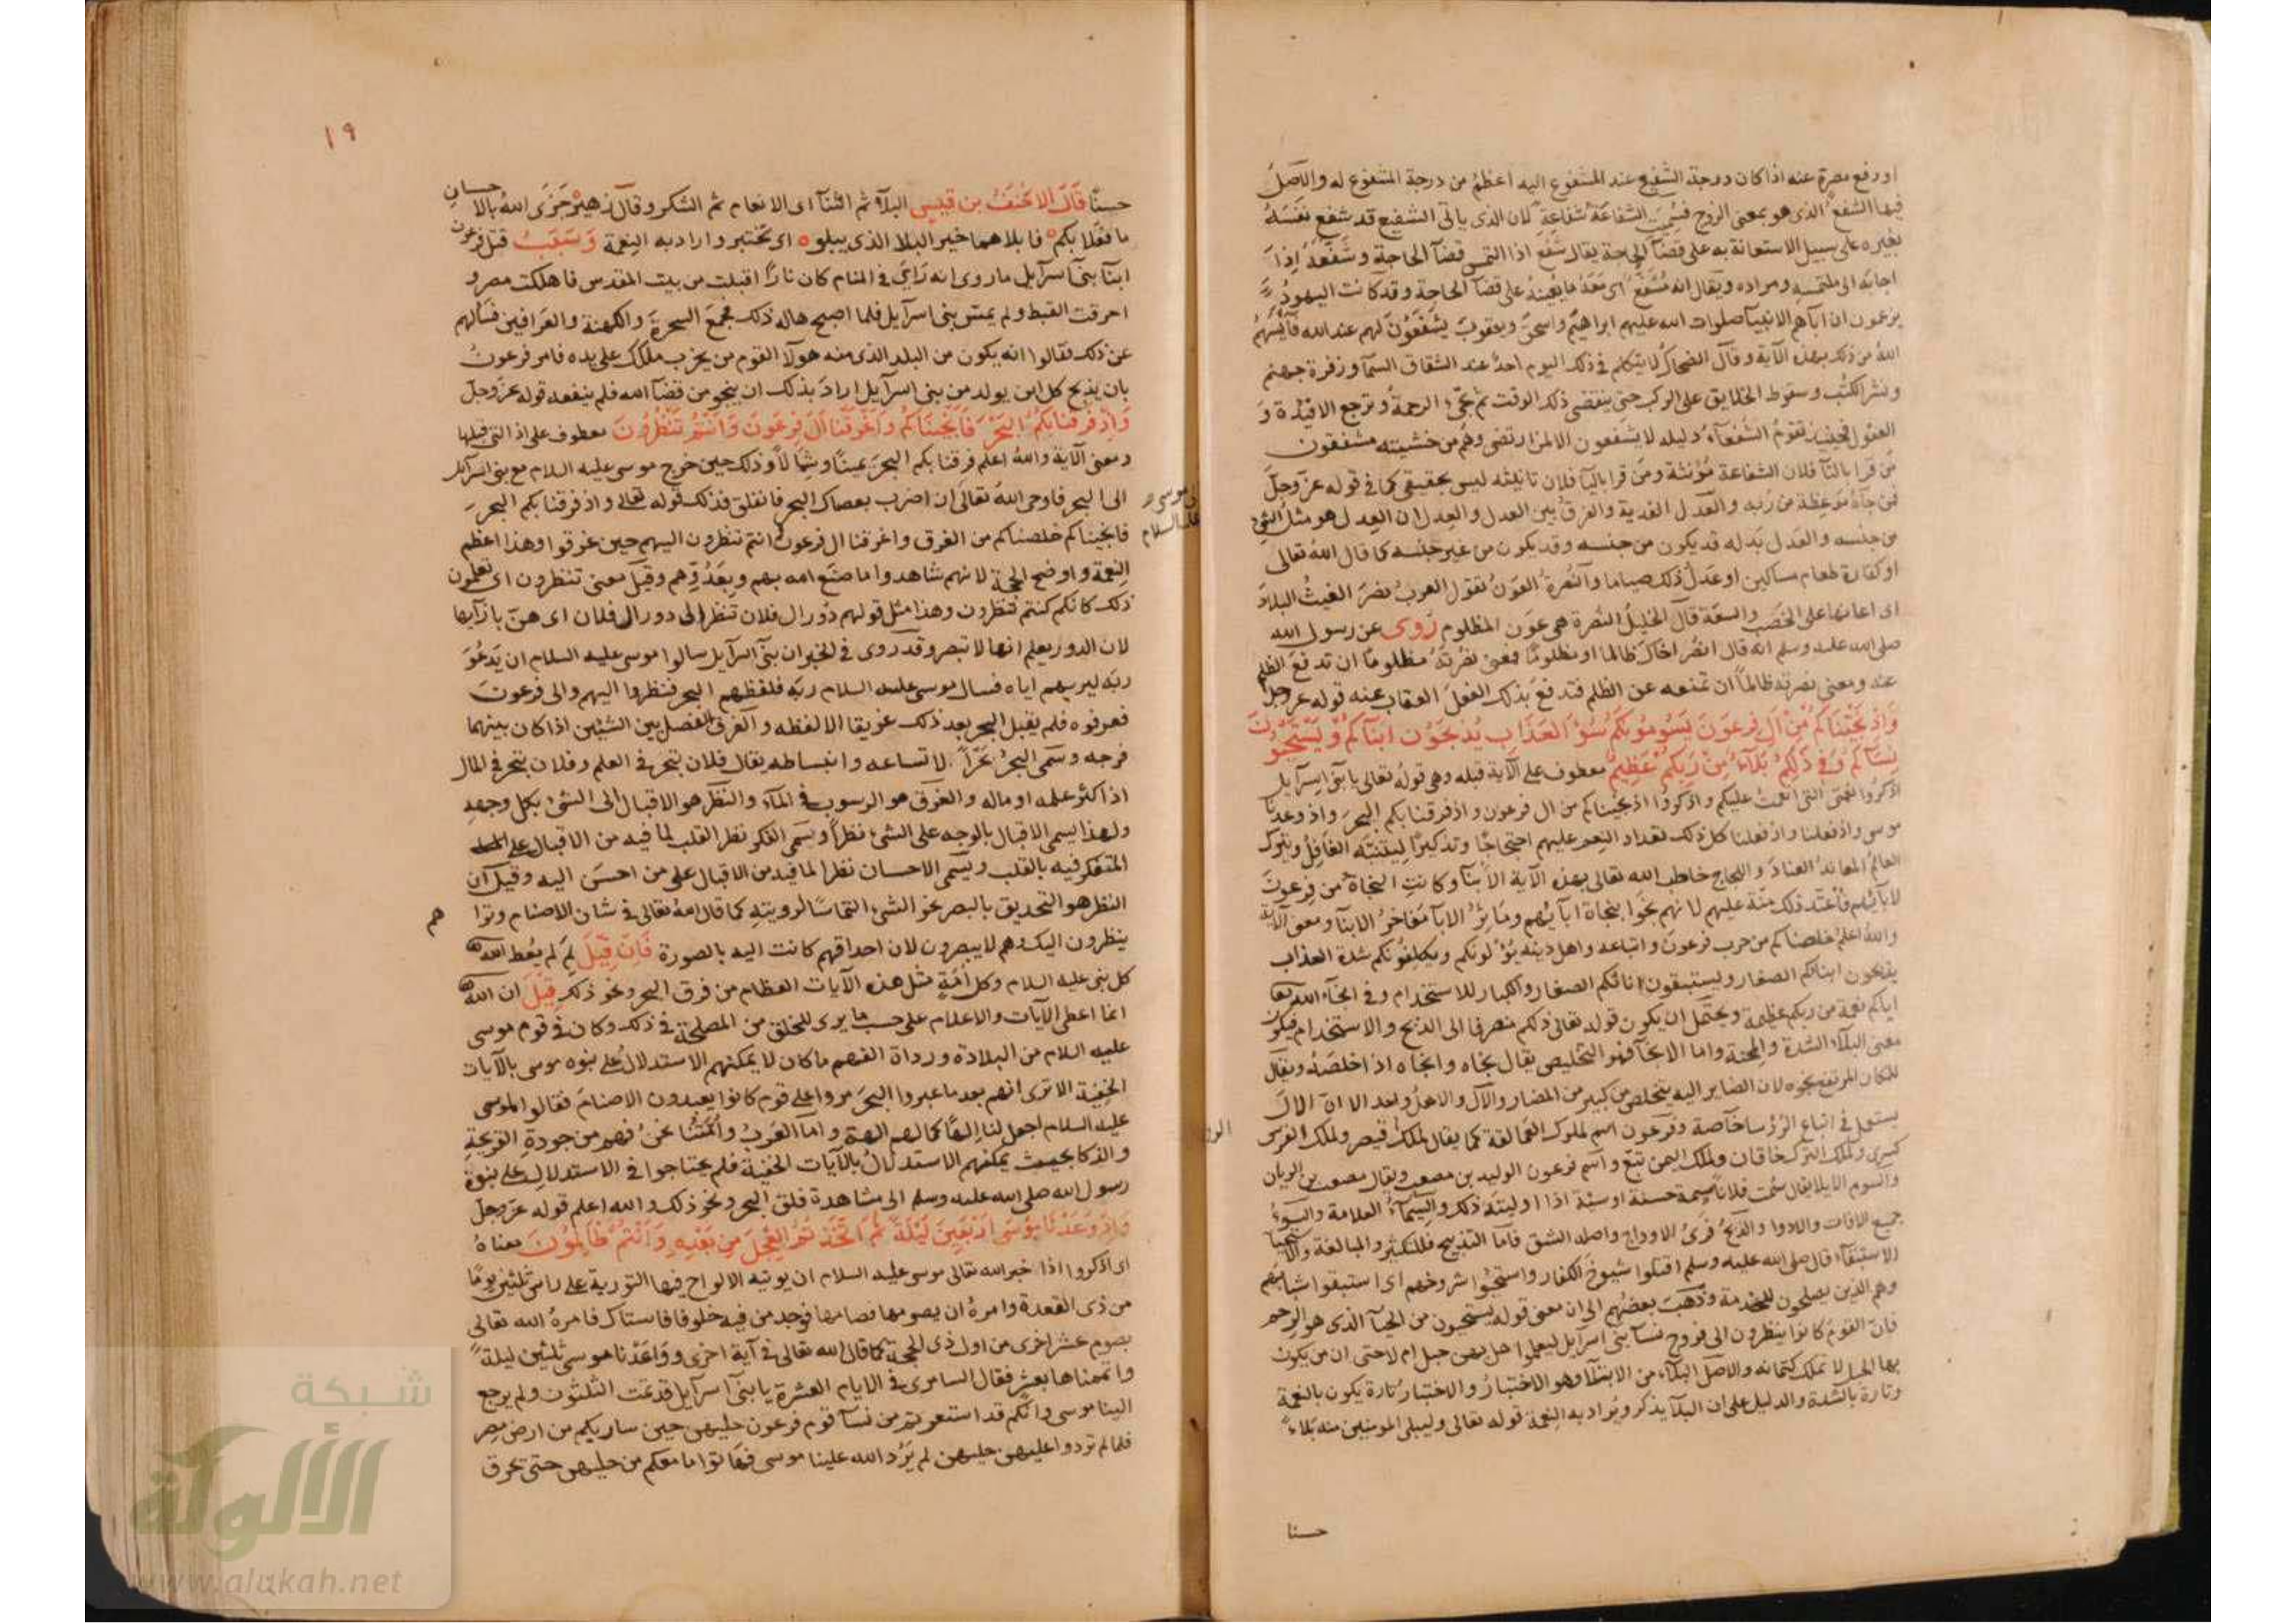 او رفع مضرة عنه اذا كان درجة الشفيع عند المشفوع اليه اعظم من درجة المشفوع له والاصل
فيها الشفع الذى هو بمعنى الزوج فسميت الشفاعة شفاعة لان الذى ياتى الشفيع قد شفع نفسه
بغيره على سبيل الاستعانة به على قضآ الحاجة يقال شفع اذا التمس قضآ الحاجة وشفعه اذا
اجابه الى ملتمسه ومراده ويقال انه مشفع اى معه ما يعينه على قضآ الحاجة وقد كانت اليهود
يزعمون ان ابآهم الانبيآ صلوات الله عليهم ابراهيم واسحق ويعقوب يشفعون لهم عند الله فآيسهم
الله من ذلك بهذه الآية وقال الضحاك لا يتكلم فى ذلك اليوم احد عند انشقاق السمآ وزفرة جهنم
ونشر الكتب وسقوط الخلايق على الركب حتى ينقضى ذلك الوقت ثم تجىء الرحمة وترجع الافئدة و
العقول فحينئذ تقوم الشفعآء دليله لا يشفعون الا لمن ارتضى وهم من خشيته مشفقون
من قرا بالتآ فلان الشفاعة مؤنثة ومن قرا باليآ فلان تانيثه ليس بحقيقى كما فى قوله عز وجل
فمن جآءه موعظة من ربه والعدل الفدية والفرق بين العدل والعدل ان العدل هو مثل الشئ
من جنسه والعدل بدله قد يكون من جنسه وقد يكون من غير جنسه كما قال الله تعالى
او كفارة طعام مساكين او عدل ذلك صياما والنصرة العون تقول العرب نصر الغيث البلاد
اى اعانها على الخصب والسعة قال الخليل النصرة هى عون المظلوم روى عن رسول الله
صلى الله عليه وسلم انه قال انصر اخاك ظالما او مظلوما فمعنى نصرته مظلوما ان تدفع الظلم
عنه ومعنى نصرته ظالما ان تمنعه عن الظلم فتدفع بذلك الفعل العقاب عنه قوله عز وجل
وَاِذ نجيناكم من آل فرعون يسومونكم سوء العذاب يذبحون ابنآكم ويستحيون
نسآكم وفى ذلكم بلآء من ربكم عظيم معطوف على الآية قبله وهى قوله تعالى يا بنى اسرآيل
اذكروا نعمتى التى انعمت عليكم واذكروا اذ نجيناكم من ال فرعون واذ فرقنا بكم البحر واذ وعدنا
موسى واذ فعلنا واذ فعلنا كل ذلك تعداد النعم عليهم احتجاجا وتذكيرا ليتنبه الغافل ويترك
العالم المعاند العناد واللجاج خاطب الله تعالى بهذه الآية الابنآ وكانت النجاة من فرعون
لابآئهم فاعتد ذلك منة عليهم لانهم نجوا بنجاة ابآئهم ومآثر الابآ مفاخر الابنآ ومعنى الآية
والله اعلم خلصناكم من حرب فرعون واتباعه واهل دينه يؤلونكم ويكلفونكم شدة العذاب
يذبحون ابنائكم الصغار ويستبقون اناثكم الصغار والكبار للاستخدام وفى انجآء الله تعالى
اياكم نعمة من ربكم عظيمة ويحتمل ان يكون قوله تعالى ذلكم منصرفا الى الذبح والاستخدام فيكون
معنى البلآء الشدة والمحنة واما الانجآ فهو التخليص يقال نجاه وانجاه اذا خلصه ويقال
للمكان المرتفع نجوه لان الصاير اليه يتخلص من كبير من المضار والآل والاهل واحد الا ان الال
يستعمل فى اتباع الرؤسا خآصة وفرعون اسم لملوك العمالقة كما يقال لملك قيصر ولملك الفرس
كسرى ولملك الترك خاقان ولملك اليمن تبع واسم فرعون الوليد بن مصعب ويقال مصعب بن الريان
والسوم الايلا يقال سمت فلانا سيمة حسنة او سيئة اذا اوليته ذلك والسيمآء العلامة والسوء
جميع الافات والادوا والذبح فرى الاوداج واصله الشق فاما التذبيح فللتكثير والمبالغة والاستحيا
الاستبقآء قال صلى الله عليه وسلم اقتلوا شيوخ الكفار واستحيوا شروخهم اى استبقوا شبابهم
وهم الذين يصلحون للخدمة وذهب بعضهم الى ان معنى قوله يستحيون من الحيآ الذى هو الرحم
فان القوم كانوا ينظرون الى فروج نسآ بنى اسرآيل ليعلموا هل بهن حبل ام لا حتى ان من يكون
بها الحبل لا تملك كتمانه والاصل البلآء من الابتلآ وهو الاختبار والاختبار تارة يكون بالنعمة
وتارة بالشدة والدليل على ان البلآ يذكر ويراد به النعمة قوله تعالى وليبلى المومنين منه بلاء
حسنا
١٩
حسنًا قال الاحنف بن قيس البلآء ثم الثنآ اى الانعام ثم الشكر وقال زهير جزى الله بالاحسان
ما فعلا بكم فابلاهما خير البلا الذى يبلو اى يختبر واراد به النعمة وسبب قتل فرعون
ابنآ بنى اسرآيل ما روى انه راى فى المنام كان نارا اقبلت من بيت المقدس فاهلكت مصر و
احرقت القبط ولم يمس بنى اسرآيل فلما اصبح هاله ذلك فجمع السحرة والكهنة والعرافين فسالهم
عن ذلك فقالوا انه يكون من البلد الذى منه هولآ القوم من يخرب ملكك على يده فامر فرعون
بان يذبح كل ابن يولد من بنى اسرآيل اراد بذلك ان ينجو من قضآ الله فلم ينفعه قوله عز وجل
وَاِذ فرقنا بكم البحر فانجيناكم واغرقنا ال فرعون وانتم تنظرون معطوف على اذ التى قبلها
ومعنى الآية والله اعلم فرقنا بكم البحر يمينا وشمالا وذلك حين خرج موسى عليه السلام مع بنى اسرآيل
الى البحر فاوحى الله تعالى ان اضرب بعصاك البحر فانفلق فذلك قوله تعالى واذ فرقنا بكم البحر
فانجيناكم خلصناكم من الغرق واغرقنا ال فرعون وانتم تنظرون اليهم حين غرقوا وهذا اعظم
النعمة واوضح الحجة لانهم شاهدوا ما صنع الله بهم وبعدوهم وقيل معنى تنظرون اى تعلمون
ذلك كانكم كنتم تنظرون وهذا مثل قولهم دور ال فلان تنظر الى دور ال فلان اى هن بازآيها
لان الدور يعلم انها لا تبصر وقد روى فى الخبر ان بنى اسرآيل سالوا موسى عليه السلام ان يدعو
ربه ليريهم اياه فسال موسى عليه السلام ربه فلفظهم البحر فنظروا اليهم والى فرعون
فعرفوه فلم يقبل البحر بعد ذلك غريقا الا لفظه والفرق الفصل بين الشيئين اذا كان بينهما
فرجه وسمى البحر بحرا لاتساعه وانبساطه يقال فلان تبحر فى العلم وفلان تبحر فى المال
اذا كثر علمه او ماله والغرق هو الرسوب فى المآء والنظر هو الاقبال الى الشئ بكل وجهه
ولهذا يسمى الاقبال بالوجه على الشئ نظرا ويسمى الفكر نظر القلب لما فيه من الاقبال على
المتفكر فيه بالقلب ويسمى الاحسان نظرا لما فيه من الاقبال على من احسن اليه وقيل ان
النظر هو التحديق بالبصر نحو الشئ التماسا لرويته كما قال الله تعالى فى شان الاصنام وترا هم
ينظرون اليك وهم لا يبصرون لان احداقهم كانت اليه بالصورة فان قيل لم لم يعط الله
كل نبى عليه السلام وكل امة مثل هذه الآيات العظام من فرق البحر ونحو ذلك قيل ان الله
انما اعطى الآيات والاعلام على حسب ما يرى للخلق من المصلحة فى ذلك وكان فى قوم موسى
عليه السلام من البلادة ورداة الفهم ما كان لا يمكنهم الاستدلال على نبوه موسى بالآيات
الخفية الا ترى انهم بعد ما عبروا البحر مروا على قوم كانوا يعبدون الاصنام فقالوا لموسى
عليه السلام اجعل لنا الها كما لهم الهة واما العرب وامتنا نحن فهم من جودة القريحة
والذكا بحيث يمكنهم الاستدلال بالآيات الخفية فلم يحتاجوا فى الاستدلال على نبوة
رسول الله صلى الله عليه وسلم الى مشاهدة فلق البحر ونحو ذلك والله اعلم قوله عز وجل
وَاِذ وَعدنا موسى اربعين ليلة ثم اتخذتم العجل من بعده وانتم ظالمون معناه
اى اذكروا اذا خبر الله تعالى موسى عليه السلام ان يوتيه الالواح فيها التورية على راس ثلثين يوما
من ذى القعدة وامره ان يصومها فصامها فوجد من فيه خلوفا فاستاك فامره الله تعالى
بصوم عشر اخرى من اول ذى الحجة كما قال الله تعالى فى آية اخرى وواعدنا موسى ثلثين ليلة
واتممناها بعشر فقال السامرى فى الايام العشرة يا بنى اسرآيل قد تمت الثلثون ولم يرجع
الينا موسى وانكم قد استعرتم من نسآ قوم فرعون حليهن حين ساريكم من ارض مصر
فلما لم تردوا عليهن حليهن لم يرد الله علينا موسى فهاتوا ما معكم من حليهن حتى نحرق
شبكة
الألوكة
www.alukah.net